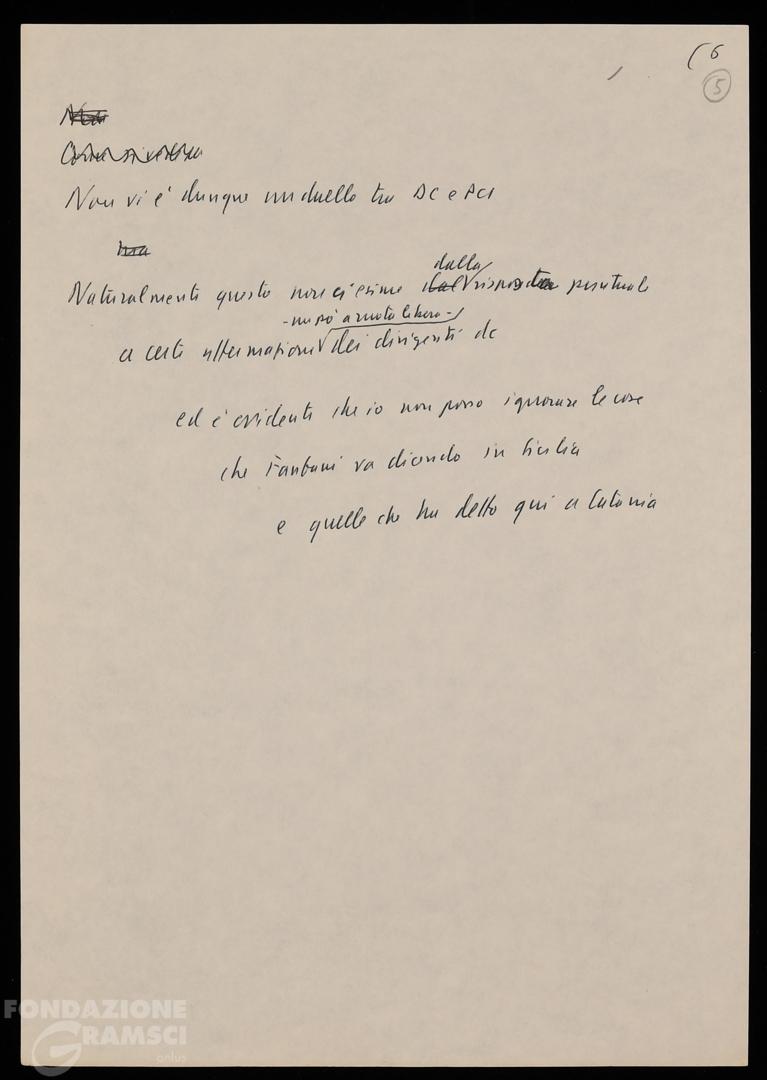 ( 6
5
Non vi è dunque un duello tra DC e PCI
ma
dalla
Naturalmente questo non ci esime dal risposta puntuale
- un po' a ruota libera -
a certe affermazioni dei dirigenti dc
ed è evidente che io non posso ignorare le cose
che Fanfani va dicendo in Sicilia
e quelle che ha detto qui a Catania
FONDAZIONE
GRAMSCI
onlus